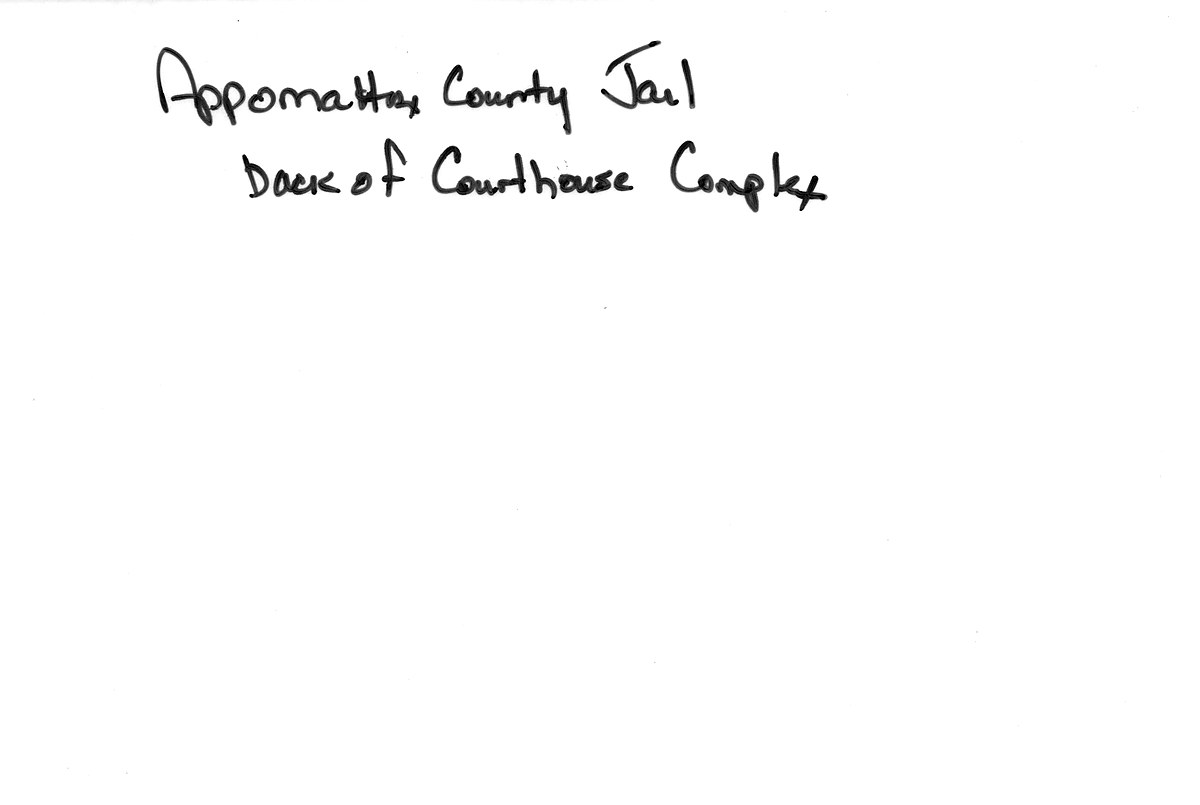 Appomattox County Jail
back of Courthouse Complex